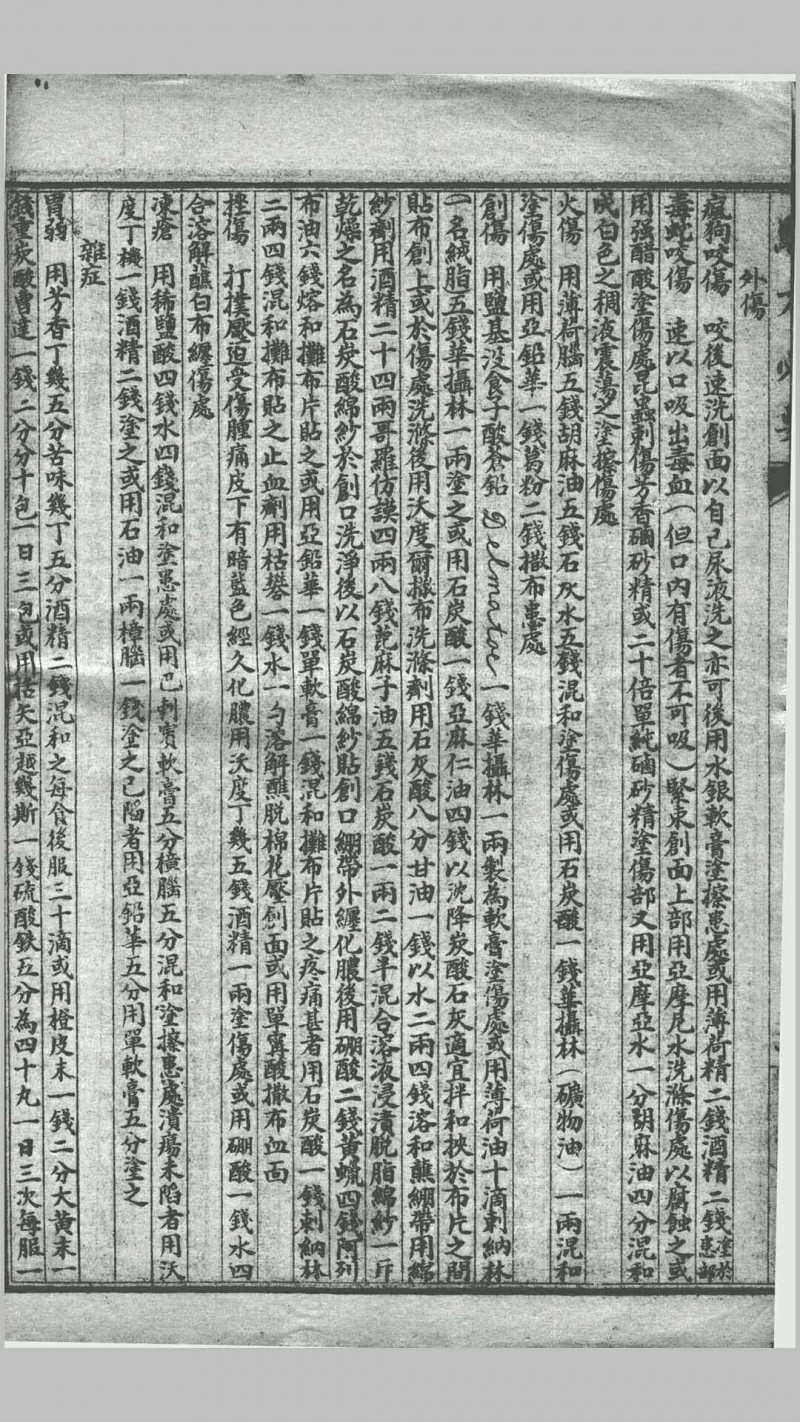 外傷
瘋狗咬傷　咬後速洗創面以自己尿液洗之亦可後用水銀軟膏塗擦患處或用薄荷精二錢酒精二錢塗於患部
毒蛇咬傷　速以口吸出毒血（但口內有傷者不可吸）緊束創面上部用亞摩尼水洗滌傷處以腐蝕之或
用强醋酸塗傷處昆蟲刺傷芳香硇砂精或二十倍單純硇砂精塗傷部又用亞摩亞水一分胡麻油四分混和
成白色之稠液震蕩之塗擦傷處
火傷　用薄荷腦五錢胡麻油五錢石灰水五錢混和塗傷處或用石炭酸一錢華攝林（礦物油）一兩混和
塗傷處或用亞鉛華一錢葛粉二錢撒布患處
創傷　用鹽基沒食子酸蒼鉛一錢華攝林一兩製為軟膏塗傷處或用薄荷油十滴刺納林
（一名絨脂五錢華攝林一兩塗之或用石炭酸一錢亞麻仁油四錢以沈降炭酸石灰適宜拌和挾於布片之間
貼布創上或於傷處洗滌後用沃度爾撒布洗滌劑用石灰酸八分甘油一錢以水二兩四錢溶和蘸綳帶用綿
紗劑用酒精二十四兩哥羅仿謨四兩八錢蓖麻子油五錢石炭酸一兩二錢半混合溶液浸漬脫脂綿紗一斤
乾燥之名為石炭酸綿紗於創口洗淨後以石炭酸綿紗貼創口綳帶外纏化膿後用硼酸二錢黃蠟四錢阿列
布油六錢熔和攤布片貼之或用亞鉛華一錢單軟膏一錢混和攤布片貼之疼痛甚者用石炭酸一錢刺納林
二兩四錢混和攤布貼之止血劑用枯礬一錢水一勺溶解蘸脫棉花壓創面或用單寗酸撒布血面
挫傷　打撲壓迫受傷腫痛皮下有暗藍色經久化膿用沃度丁幾五錢酒精一兩塗傷處或用硼酸一錢水四
合溶解蘸白布纏傷處
凍瘡　用稀鹽酸四錢水四錢混和塗患處或用巴刺賓軟膏五分樟腦五分混和塗擦患處潰瘍未陷者用沃
度丁機一錢酒精二錢塗之或用石油一兩樟腦一錢塗之已陷者用亞鉛華五分用單軟膏五分塗之
雜症
胃弱　用芳香丁幾五分苦味幾丁五分酒精二錢混和之每食後服三十滴或用橙皮末一錢二分大黃末一
錢重炭酸曹達一錢二分分十包一日三包或用括矢亞越幾斯一錢硫酸鉄五分為四十丸一日三次每服一